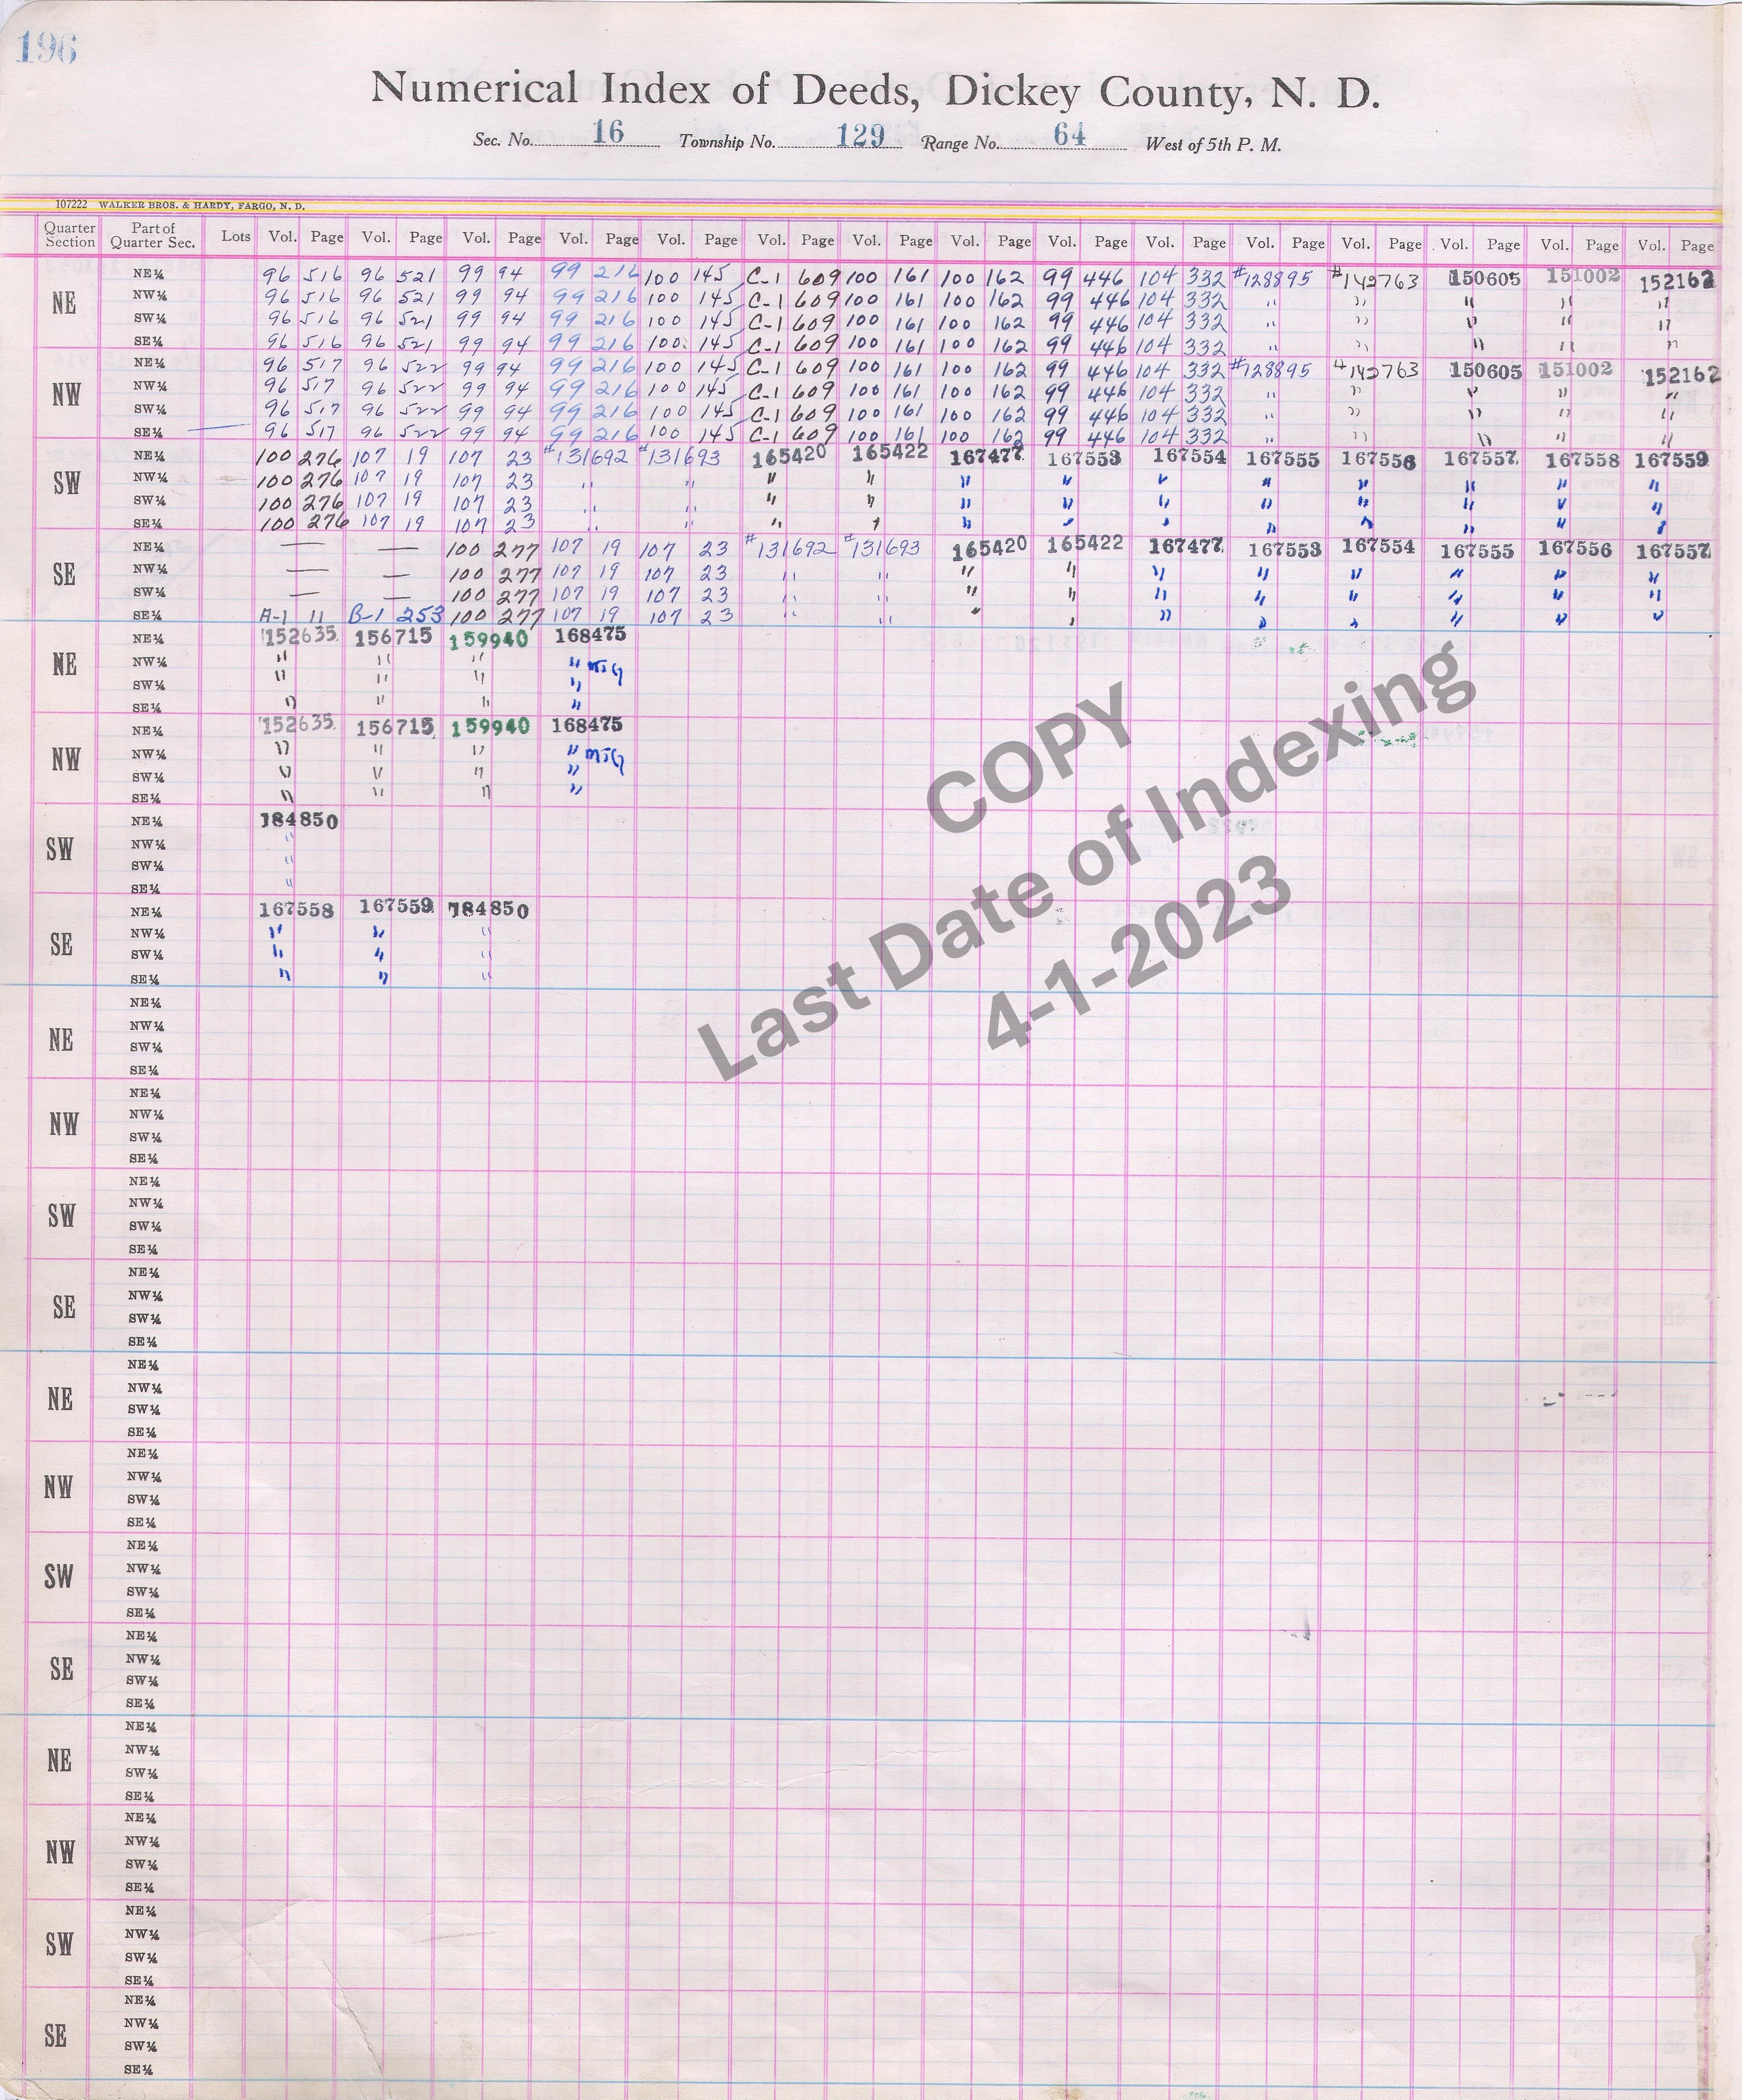 196
Numerical Index of Deeds, Dickey County, N. D.
Sec. No. 16 Township No. 129 Range No. 64 West of 5th P. M.
107222 WALKER BROS. & HARDY, FARGO, N. D.
Quarter Section Part of Quarter Sec. Lots Vol. Page Vol. Page Vol. Page Vol. Page Vol. Page Vol. Page Vol. Page Vol. Page Vol. Page Vol. Page Vol. Page Vol. Page Vol. Page Vol. Page Vol. Page
NE
NE¼ 96 516 96 521 99 94 99 216 100 145 C-1 609 100 161 100 162 99 446 104 332 #128895 #142763 150605 151002 152162
NW¼ 96 516 96 521 99 94 99 216 100 145 C-1 609 100 161 100 162 99 446 104 332 " " " " "
SW¼ 96 516 96 521 99 94 99 216 100 145 C-1 609 100 161 100 162 99 446 104 332 " " " " "
SE¼ 96 516 96 521 99 94 99 216 100 145 C-1 609 100 161 100 162 99 446 104 332 " " " " "
NW
NE¼ 96 517 96 522 99 94 99 216 100 145 C-1 609 100 161 100 162 99 446 104 332 #128895 #142763 150605 151002 152162
NW¼ 96 517 96 522 99 94 99 216 100 145 C-1 609 100 161 100 162 99 446 104 332 " " " " "
SW¼ 96 517 96 522 99 94 99 216 100 145 C-1 609 100 161 100 162 99 446 104 332 " " " " "
SE¼ 96 517 96 522 99 94 99 216 100 145 C-1 609 100 161 100 162 99 446 104 332 " " " " "
SW
NE¼ 100 276 107 19 107 23 #131692 #131693 165420 165422 167477 167553 167554 167555 167556 167557 167558 167559
NW¼ 100 276 107 19 107 23 " " " " " " " " " " " "
SW¼ 100 276 107 19 107 23 " " " " " " " " " " " "
SE¼ 100 276 107 19 107 23 " " " " " " " " " " " "
SE
NE¼ — — 100 277 107 19 107 23 #131692 #131693 165420 165422 167477 167553 167554 167555 167556 167557
NW¼ — — 100 277 107 19 107 23 " " " " " " " " " "
SW¼ — — 100 277 107 19 107 23 " " " " " " " " " "
SE¼ A-1 11 B-1 253 100 277 107 19 107 23 " " " " " " " " " "
NE
NE¼ 152635 156715 159940 168475
NW¼ " " " " mtg
SW¼ " " " "
SE¼ " " " "
NW
NE¼ 152635 156715 159940 168475
NW¼ " " " " mtg
SW¼ " " " "
SE¼ " " " "
SW
NE¼ 184850
NW¼ "
SW¼ "
SE¼ "
SE
NE¼ 167558 167559 184850
NW¼ " " "
SW¼ " " "
SE¼ " " "
COPY
Last Date of Indexing
4-1-2023
NE
NE¼
NW¼
SW¼
SE¼
NW
NE¼
NW¼
SW¼
SE¼
SW
NE¼
NW¼
SW¼
SE¼
SE
NE¼
NW¼
SW¼
SE¼
NE
NE¼
NW¼
SW¼
SE¼
NW
NE¼
NW¼
SW¼
SE¼
SW
NE¼
NW¼
SW¼
SE¼
SE
NE¼
NW¼
SW¼
SE¼
NE
NE¼
NW¼
SW¼
SE¼
NW
NE¼
NW¼
SW¼
SE¼
SW
NE¼
NW¼
SW¼
SE¼
SE
NE¼
NW¼
SW¼
SE¼